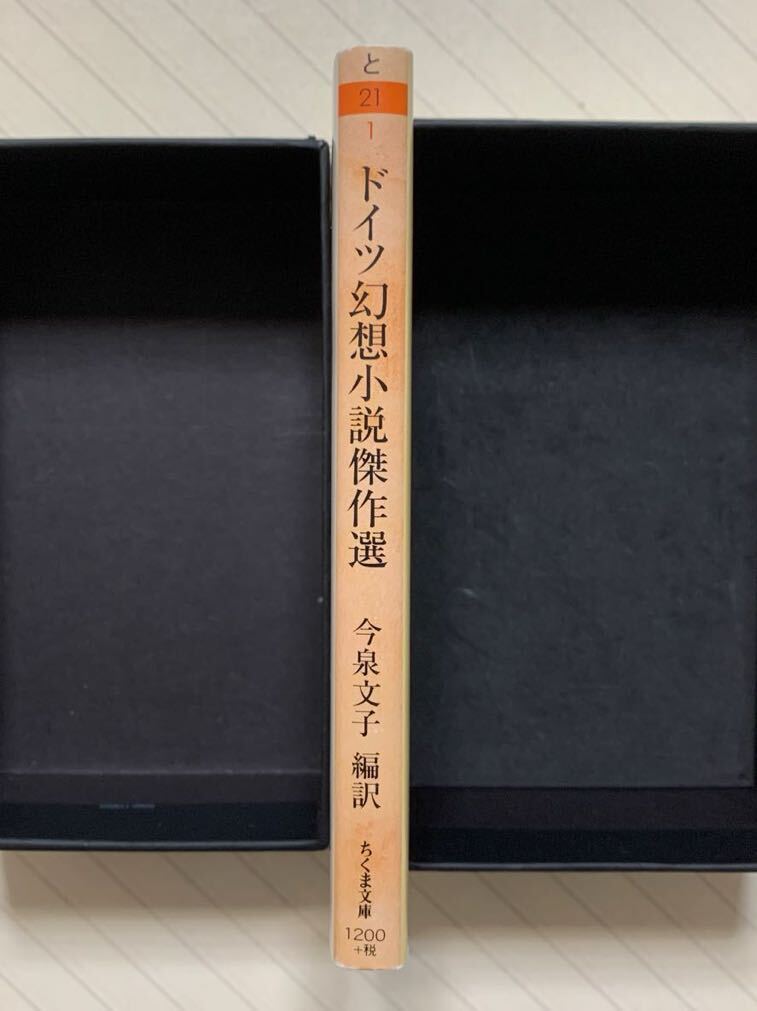 と
21
1
ドイツ幻想小説傑作選
今泉文子 編訳
ちくま文庫
1200
+税